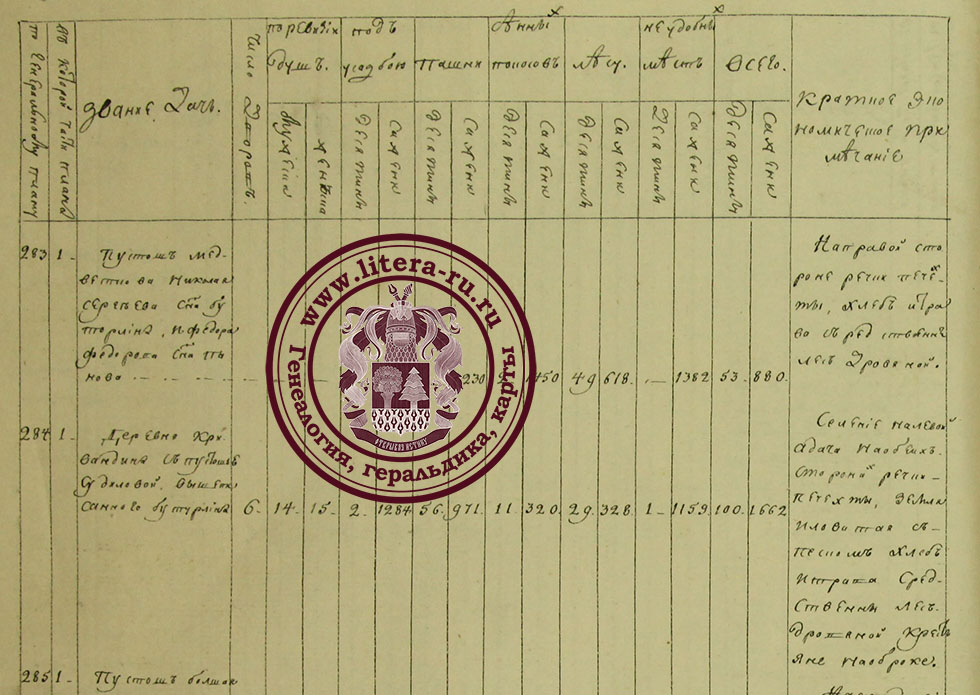 по генеральному плану
въ которой части плана
звание дачъ.
число дворовъ.
по ревизiи душъ.
мужеска
женска
подъ усадбою
десятины
сажени
пашни
десятины
сажени
покосовъ
десятины
сажени
лѣсу.
десятины
сажени
неудобных мѣстъ
десятины
сажени
всего.
десятины
сажени
краткое эко
номическое при
мѣчанiе
283 1
Пустошъ мед-
сергеева сна бу
турлина, и федора
федорова сна
49 618. 1382 53. 880.
На правой сто
роне речки печех
ты, хлебъ и тра
ва средственны
лесъ дровяной.
284 1
Деревня Кри
вандина съ пустошъю
санного бутурлина 6. 14. 15. 2. 1284 56. 971. 11. 320. 29. 328. 1 1159. 100. 1662
Селение на левой
а дача на обеихъ
сторонах речки
печехты, земля
иловатая съ
пескомъ хлебъ
и трава сред
ственны лесъ
дровяной крестъ
яне на оброке.
285 1 Пустошъ болшая
www.litera-ru.ru
Генеалогия, геральдика, карты